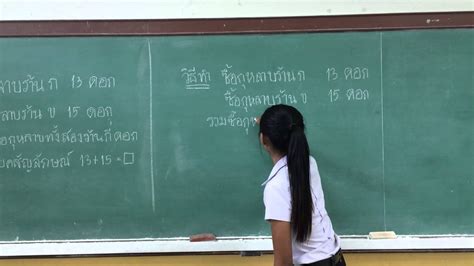 ลาบร้าน ก 13 ดอก
ลาบร้าน ข 15 ดอก
อกุหลาบทั้งสองร้านกี่ดอก
สัญลักษณ์ 13+15 = □
วิธีทำ ซื้อกุหลาบร้าน ก 13 ดอก
ซื้อกุหลาบร้าน ข 15 ดอก
รวมซื้อกุ